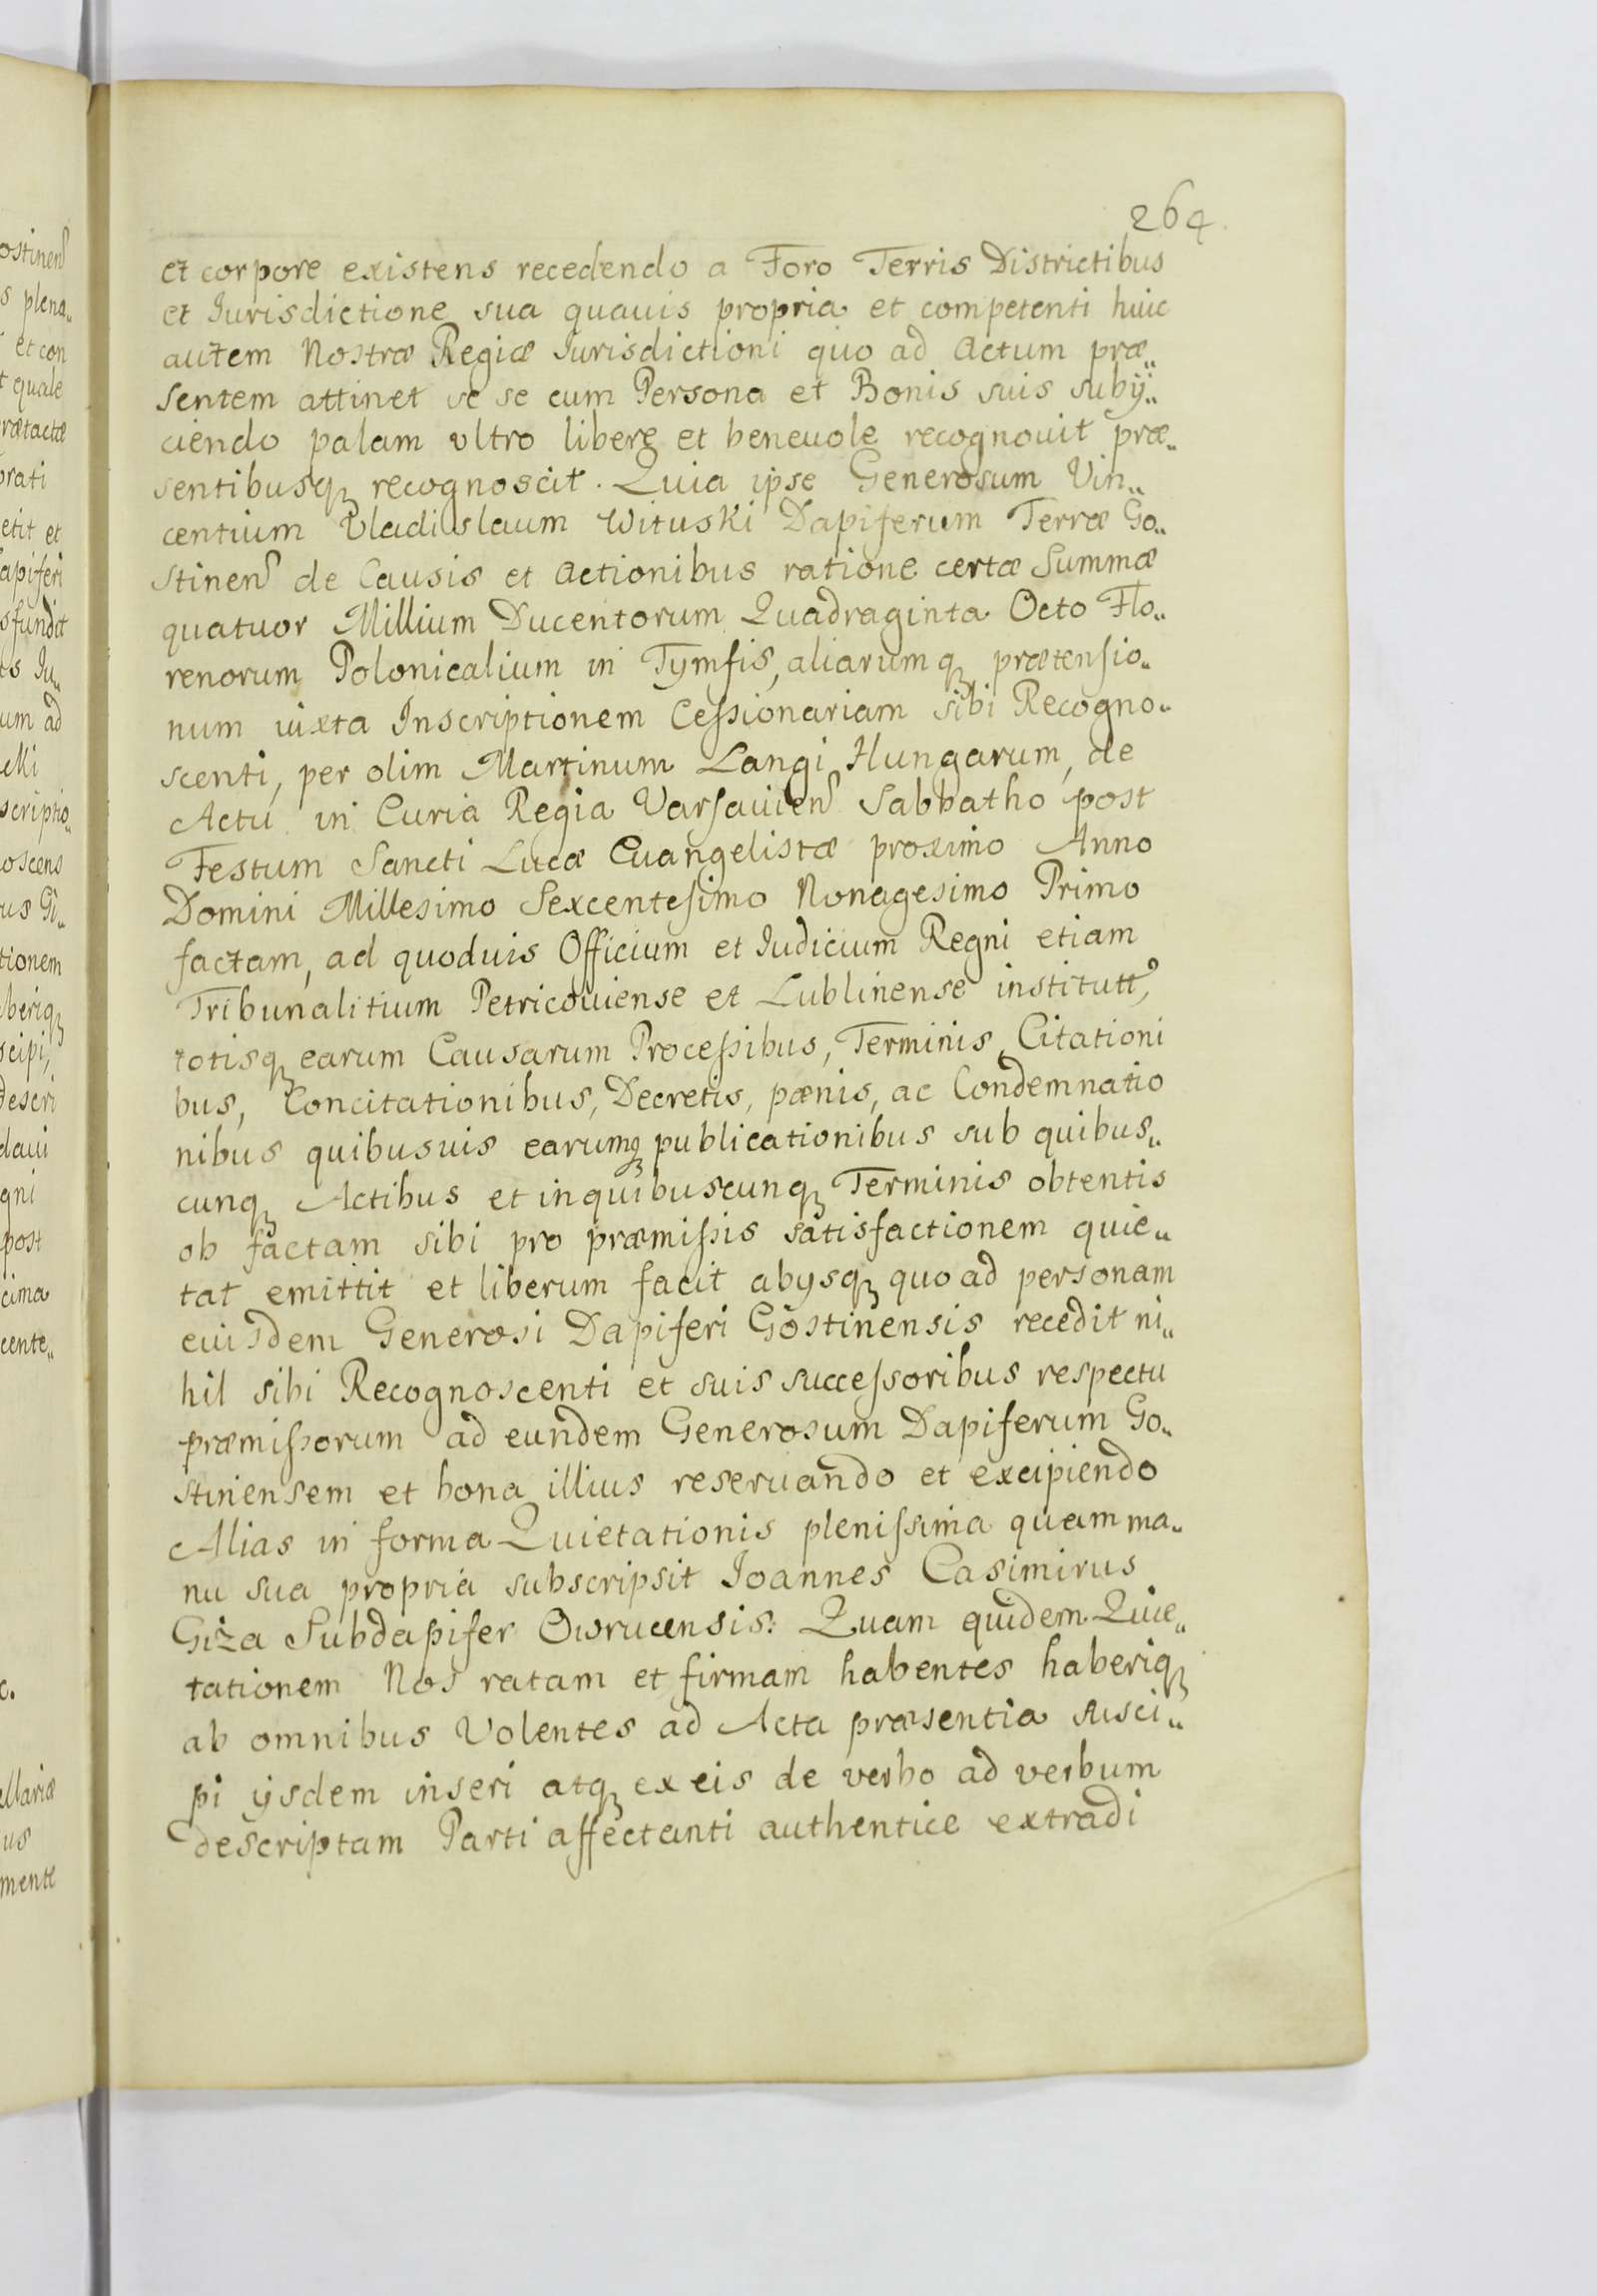 264.
et corpore existens recedendo a Foro Terris Districtibus
et Iurisdictione sua quauis propria et competenti huic
autem Nostræ Regiæ Iurisdictioni quo ad Actum præ„
sentem attinet se se cum Persona et Bonis suis subÿ„
ciendo palam vltro libere et beneuole recognouit præ„
sentibusq recognoscit. Quia ipse Generosum Vin„
centium Vladislaum Wituski Dapiferum Terræ Go„
stinen de Causis et Actionibus ratione certæ Summæ
quatuor Millium Ducentorum Quadraginta Octo Flo„
renorum Polonicalium in Tymfis, aliarumq prætensio„
num iuxta Inscriptionem Cessionariam sibi Recogno„
scenti, per olim Martinum Langi Hungarum, de
Actu in Curia Regia Varsauien Sabbatho post
Festum Sancti Lucæ Euangelistæ proximo Anno
Domini Millesimo Sexcentesimo Nonagesimo Primo
factam, ad quoduis Officium et Iudicium Regni etiam
Tribunalitium Petricouiense et Lublinense institutt,
totisq earum Causarum Processibus, Terminis, Citationi
bus, Concitationibus, Decretis, pænis, ac Condemnatio
nibus quibusuis earumq publicationibus sub quibus„
cunq Actibus et in quibuscunq Terminis obtentis
ob factam sibi pro præmissis satisfactionem quie„
tat emittit et liberum facit abysq quo ad personam
eiusdem Generosi Dapiferi Gostinensis recedit ni„
hil sibi Recognoscenti et suis successoribus respectu
præmissorum ad eundem Generosum Dapiferum Go„
stinensem et bona illius reseruando et excipiendo
Alias in forma Quietationis plenissima quam ma„
nu sua propria subscripsit Ioannes Casimirus
Giża Subdapifer Owrucensis: Quam quidem Quie„
tationem Nos ratam et firmam habentes haberiq
ab omnibus Volentes ad Acta præsentia susci„
pi ijsdem inseri atq ex eis de verbo ad verbum
descriptam Parti affectanti authentice extradi